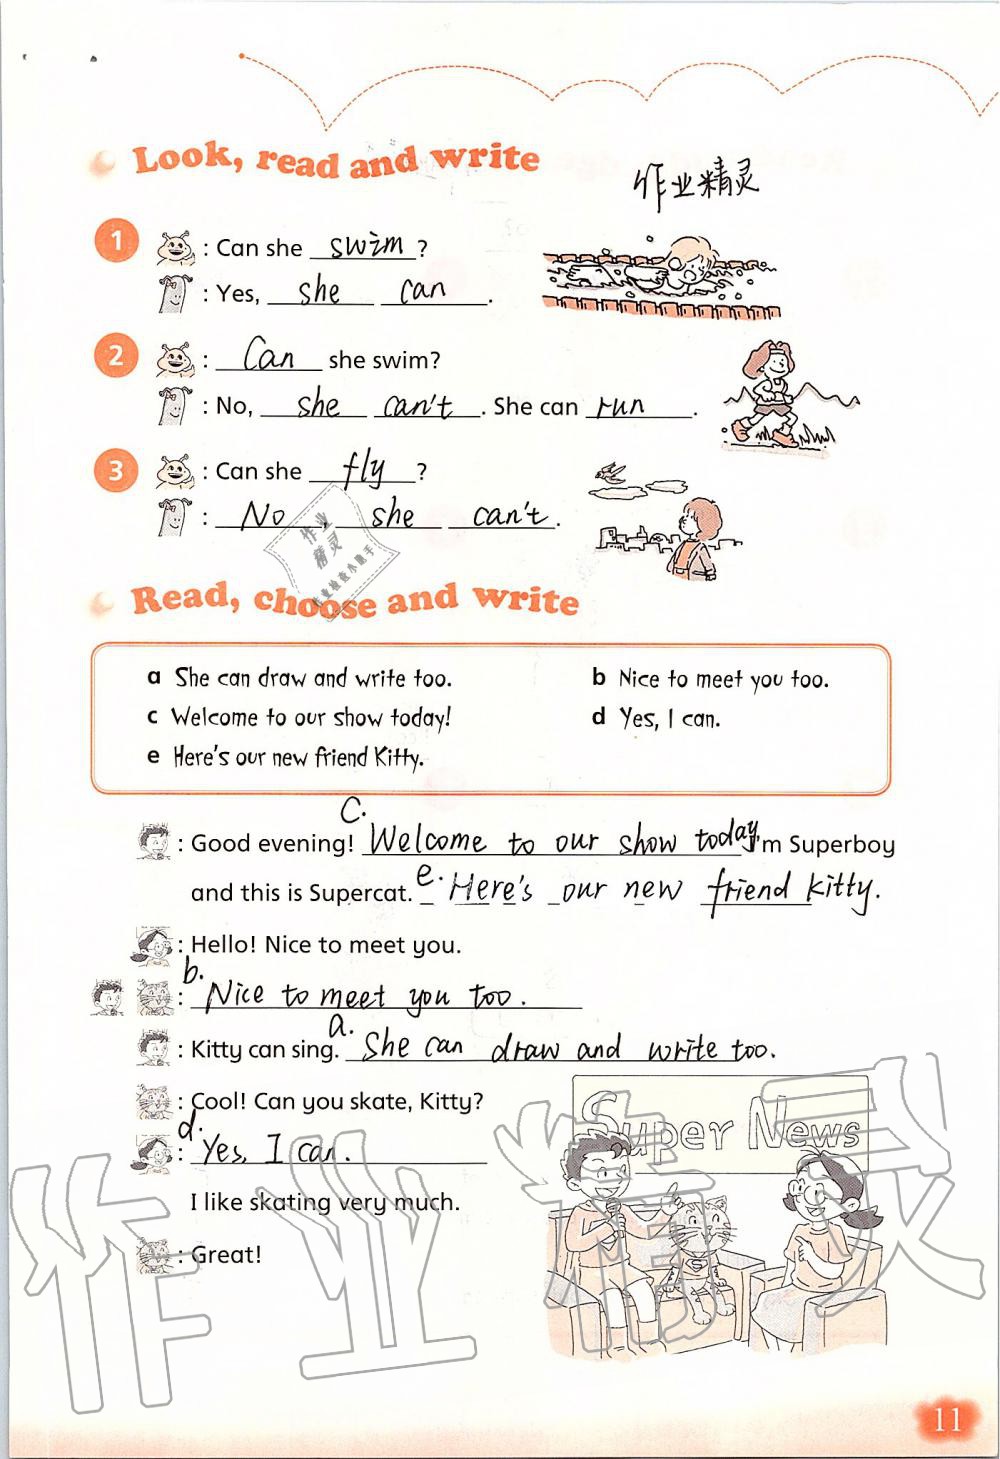 Look, read and write
作业精灵
1 : Can she swim ?
: Yes, she can .
2 : Can she swim?
: No, she can't . She can run .
3 : Can she fly ?
: No , she can't .
作业
精灵
Read, choose and write
a She can draw and write too. b Nice to meet you too.
c Welcome to our show today! d Yes, I can.
e Here's our new friend Kitty.
c.
: Good evening! Welcome to our show today I'm Superboy
and this is Supercat. e. Here's our new friend kitty.
: Hello! Nice to meet you.
b.
: Nice to meet you too.
a.
: Kitty can sing. She can draw and write too.
: Cool! Can you skate, Kitty?
d.
: Yes, I can.
I like skating very much.
: Great!
Super News
S
作业精灵
11